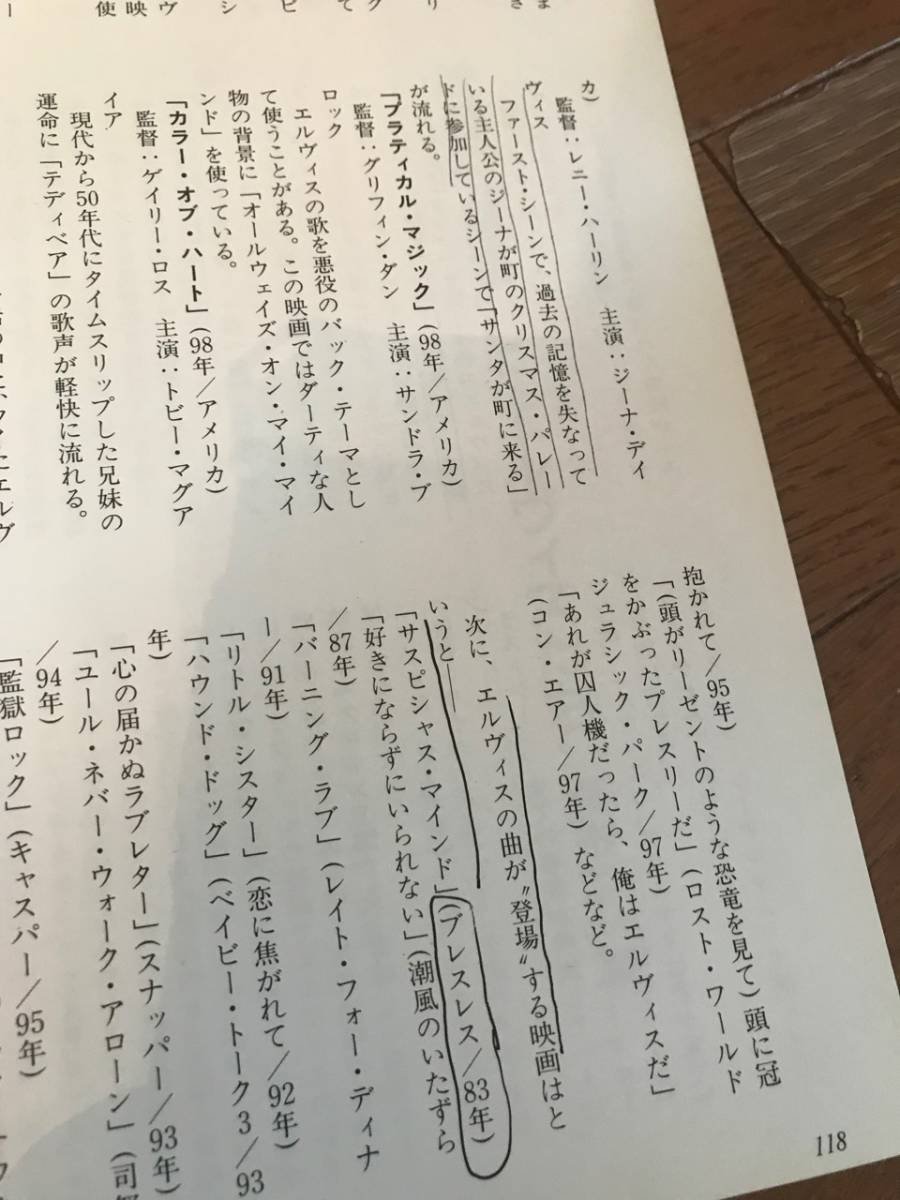 カ)
監督：レニー・ハーリン　主演：ジーナ・デイ
ヴィス
ファースト・シーンで、過去の記憶を失なって
いる主人公のジーナが町のクリスマス・パレー
ドに参加しているシーンで「サンタが町に来る」
が流れる。
「プラティカル・マジック」(98年/アメリカ)
監督：グリフィン・ダン　主演：サンドラ・ブ
ロック
エルヴィスの歌を悪役のバック・テーマとし
て使うことがある。この映画ではダーティな人
物の背景に「オールウェイズ・オン・マイ・マイ
ンド」を使っている。
「カラー・オブ・ハート」(98年/アメリカ)
監督：ゲイリー・ロス　主演：トビー・マグア
イア
現代から50年代にタイムスリップした兄妹の
運命に「テディベア」の歌声が軽快に流れる。
抱かれて/95年)
「(頭がリーゼントのような恐竜を見て)頭に冠
をかぶったプレスリーだ」(ロスト・ワールド
ジュラシック・パーク/97年)
「あれが囚人機だったら、俺はエルヴィスだ」
(コン・エアー/97年)などなど。
次に、エルヴィスの曲が〝登場〟する映画はと
いうと――
「サスピシャス・マインド」(ブレスレス/83年)
「好きにならずにいられない」(潮風のいたずら
/87年)
「バーニング・ラブ」(レイト・フォー・ディナ
ー/91年)
「リトル・シスター」(恋に焦がれて/92年)
「ハウンド・ドッグ」(ベイビー・トーク3/93
年)
「心の届かぬラブレター」(スナッパー/93年)
「ユール・ネバー・ウォーク・アローン」(司
/94年)
「監獄ロック」(キャスパー/95年)
118